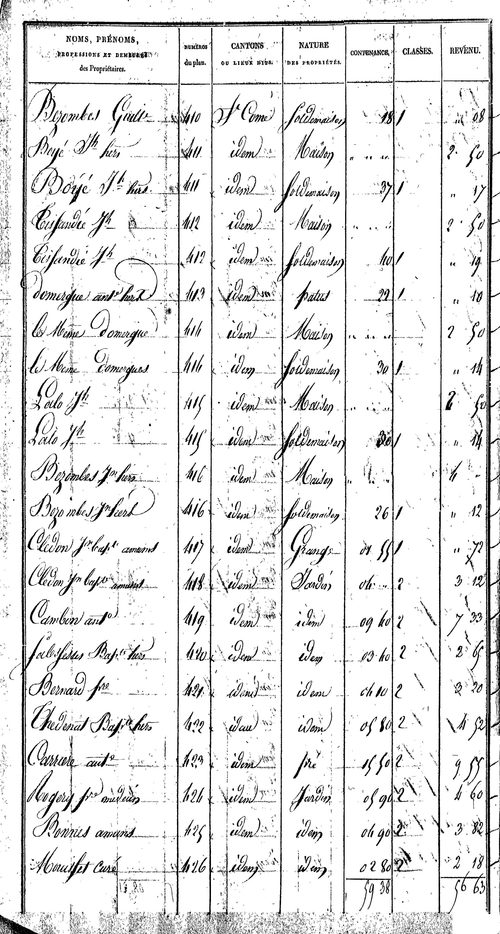 NOMS, PRÉNOMS, PROFESSIONS ET DEMEURES des Propriétaires. NUMÉROS du plan. CANTONS OU LIEUX DITS. NATURE DES PROPRIÉTÉS. CONTENANCE. CLASSES. REVENU.
Bezombes 410 St Come Soldemaison 18 1 " 08
Boyé Jh hers 411 idem Maison " " " 2 50
Boyé Jh hers 411 idem Soldemaison 37 1 " 17
Tisfandié Jh 412 idem Maison " " " 2 50
Tisfandié Jh 412 idem Soldemaison 40 1 " 19
domergue anto hers 413 idem patus 22 1 " 10
le Meme domergue 414 idem Maison " " " 2 50
le Meme domergues 414 idem Soldemaison 30 1 " 14
Lalo Jh 415 idem Maison " " " 2 50
Lalo Jh 415 idem Soldemaison 30 1 " 14
Bezombes Jn hers 416 idem Maison " " " 4
Bezombes Jn hers 416 idem Soldemaison 26 1 " 12
Cledon Jn bapt amans 417 idem Grange 01 55 1 " 72
Cledon Jn bapt amans 418 idem Jardin 04 " 2 3 12
Cambon anto 419 idem idem 09 40 2 7 33
Bapt hers 420 idem idem 03 40 2 2 65
Bernard pre 421 idem idem 04 10 2 3 20
Thedenat Bapt hers 422 idem idem 05 80 2 4 52
Carrere anto 423 idem pré 15 50 2 9 55
Rogery pre médecin 424 idem Jardin 05 90 2 4 60
Bonnies amans 425 idem idem 04 90 2 3 82
Mouisset curé 426 idem idem 02 80 2 2 18
59 38 56 63